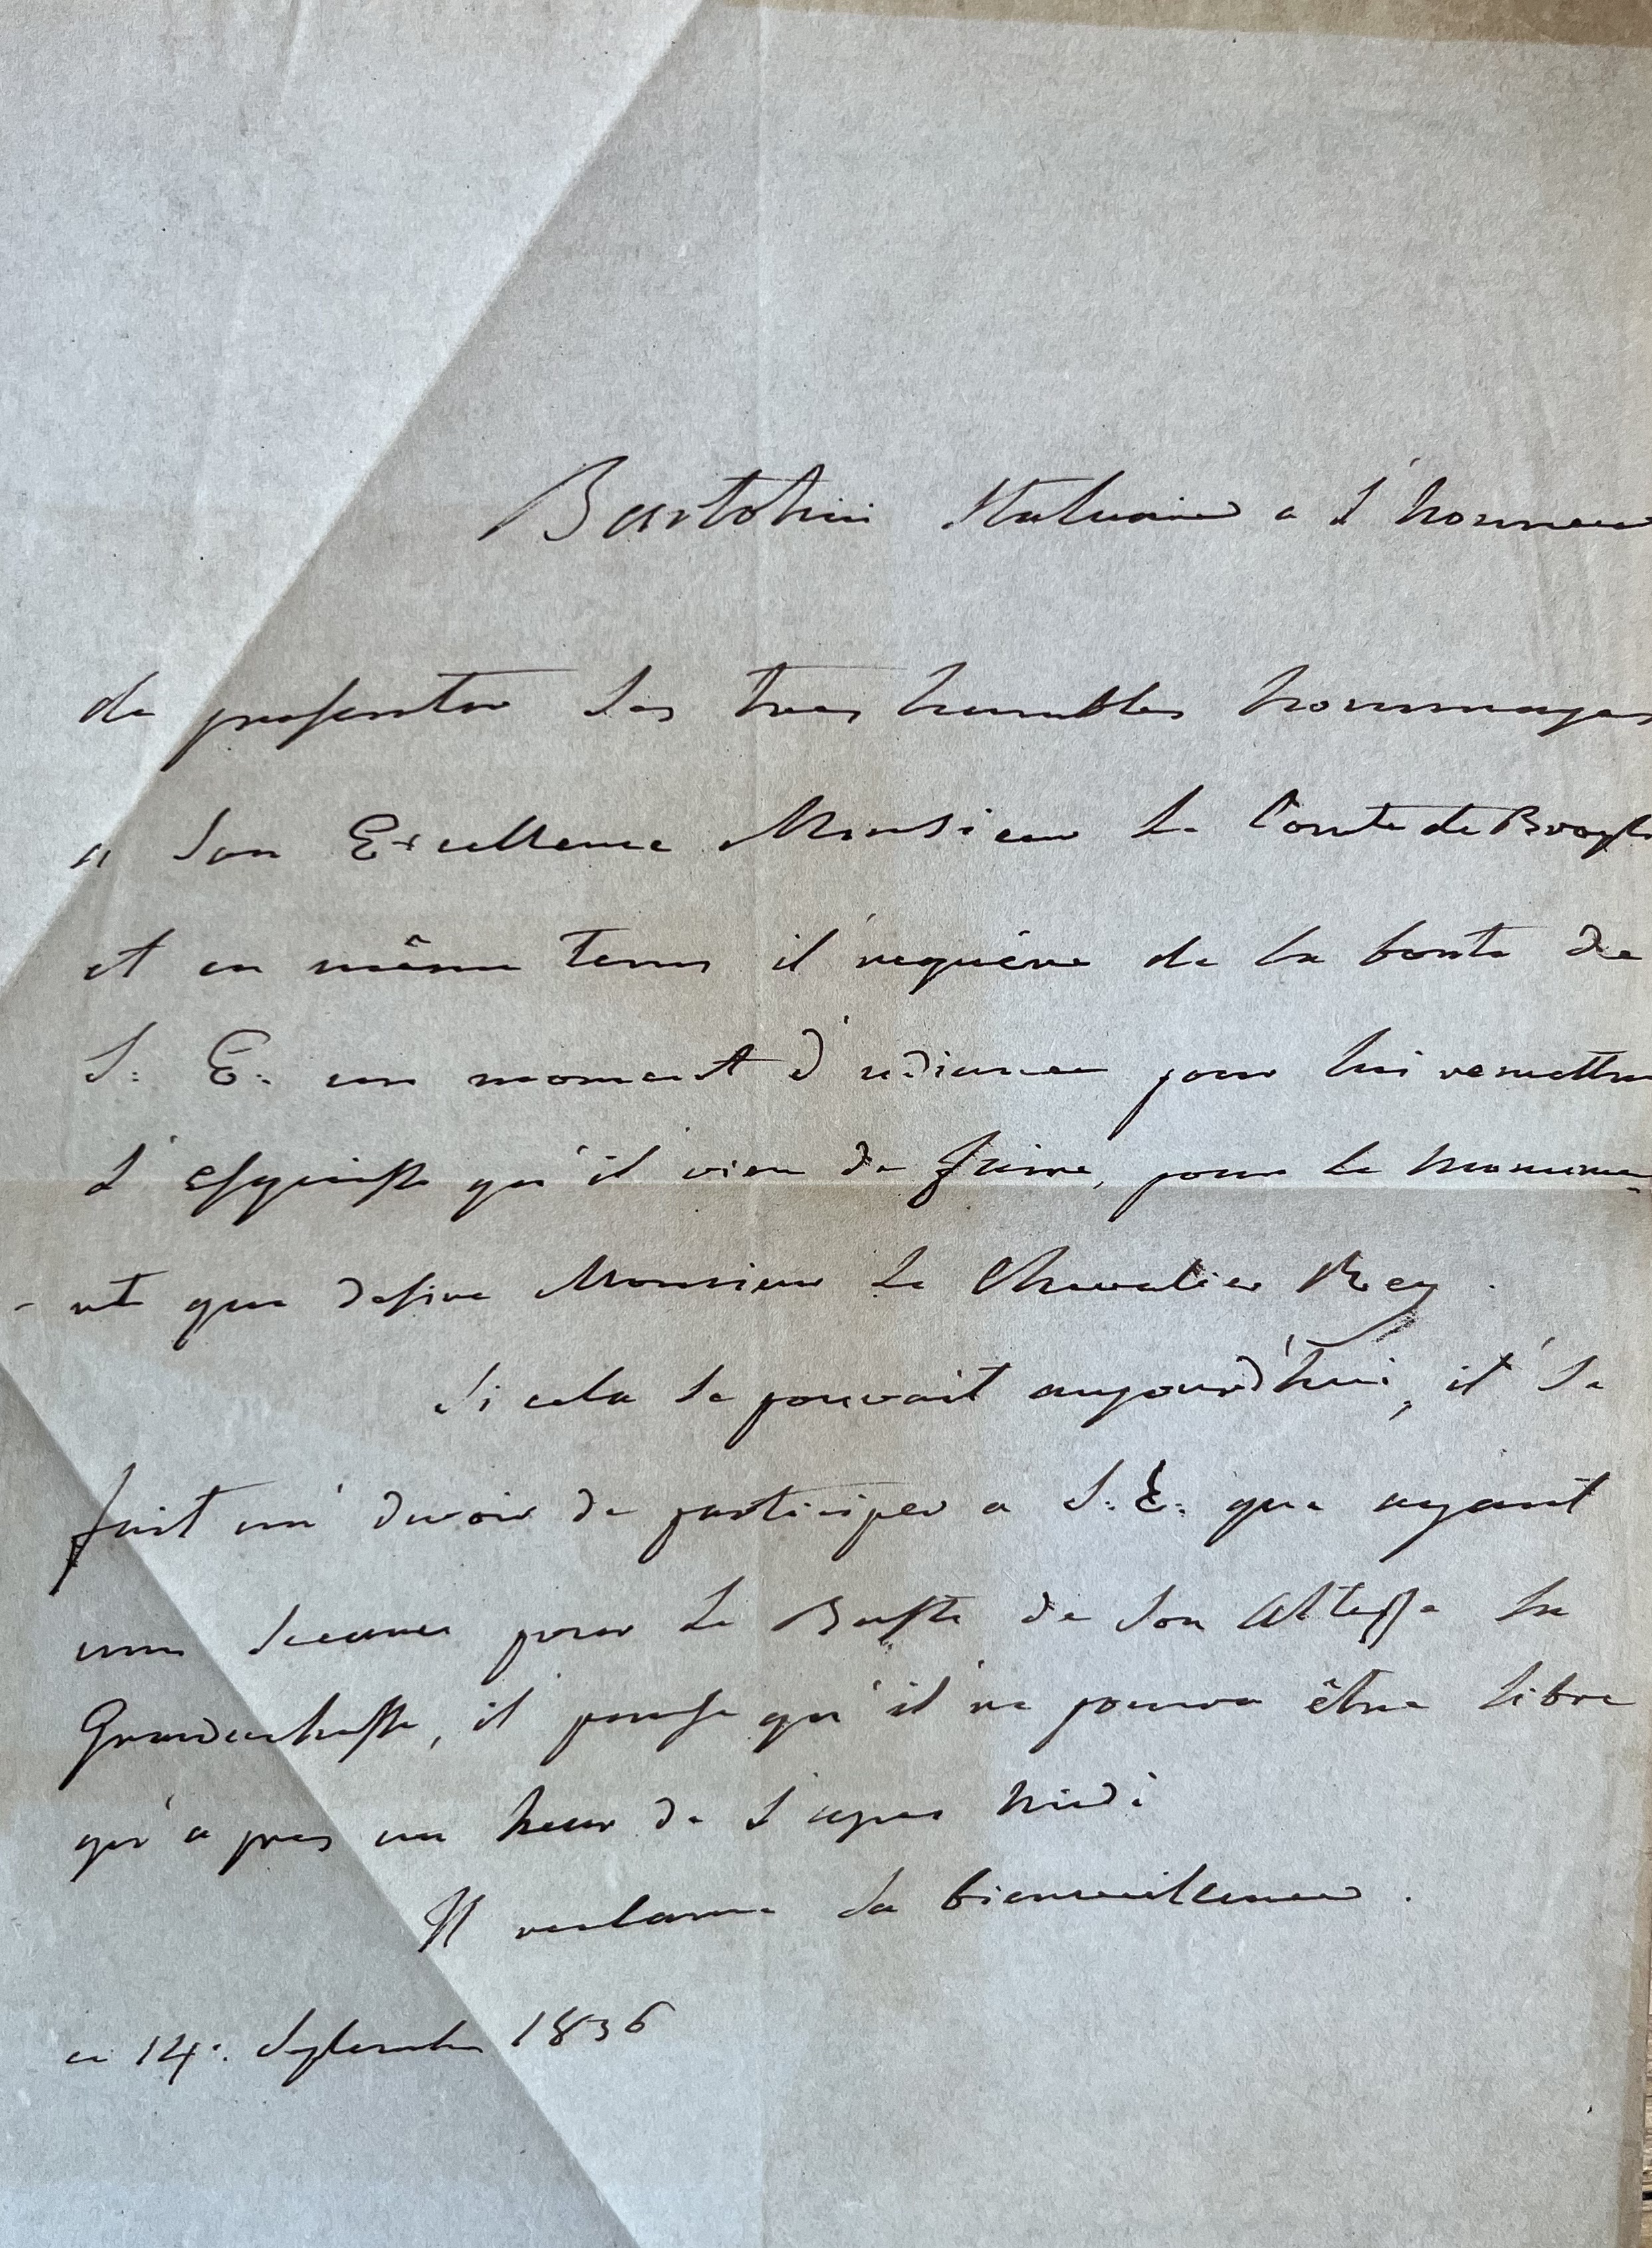 Bartolini Statuaire a l'honneur
de presenter ses tres humbles hommages
a Son Excellence Monsieur le Comte de Brogli
et en même tems il requiere de la bonte de
S: E: un moment d'udience pour lui remettre
l'esquisse qu'il vien de faire, pour le monume-
-nt que desire Monsieur le Chevalier Rey.
Si cela se pouvait aujourd'hui, il se
fait un devoir de participer a S: E: que ayant
une seeance pour le Buste de Son Altesse la
Granduchesse, il pense qu'il ne pourra être libre
qu'a pres un heur de l'apres midi
Il reclame sa bienveillance.
ce 14: Septembre 1836